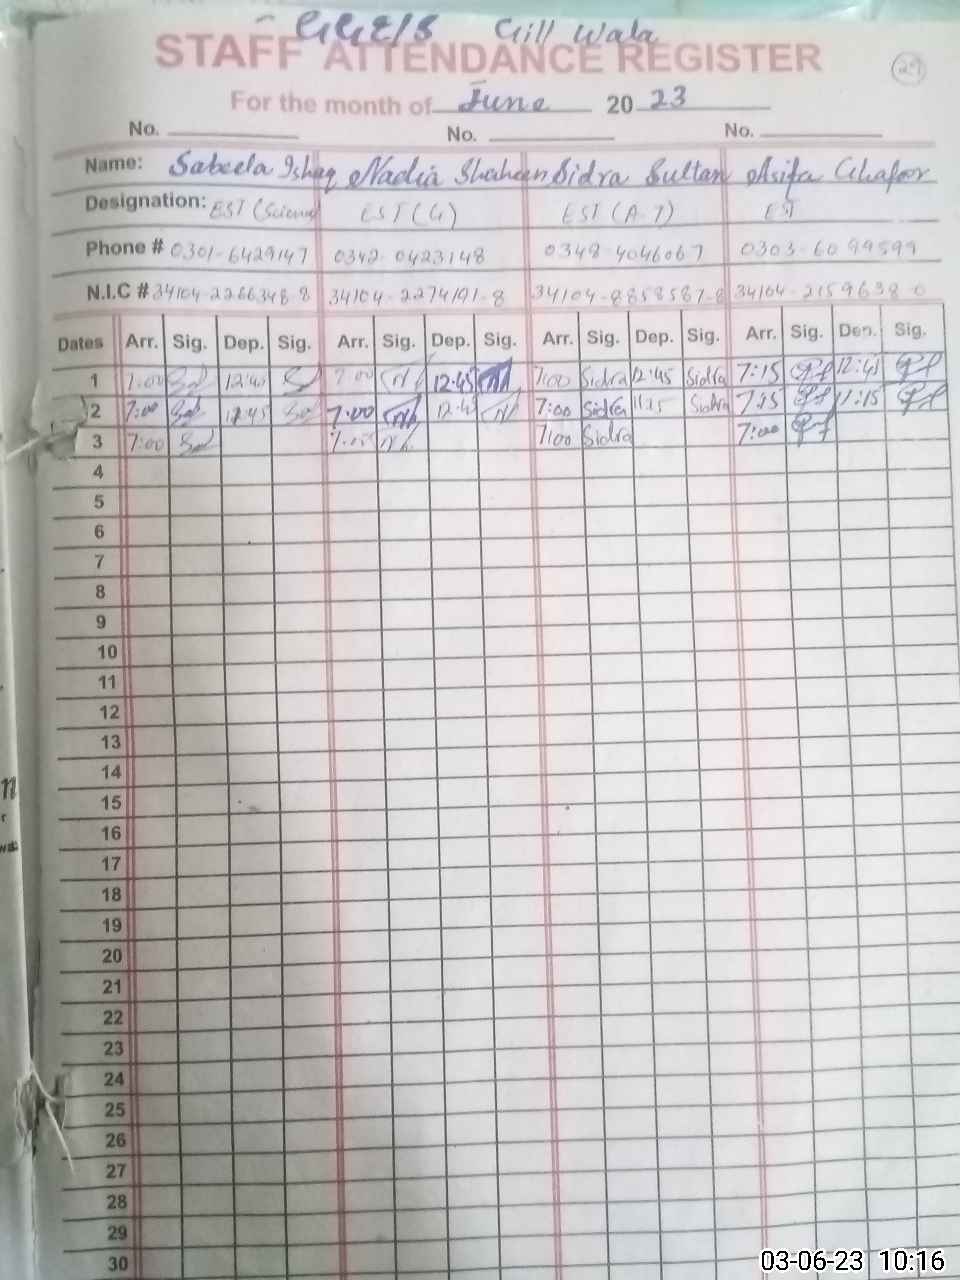 GGE/S Gill Wala
STAFF ATTENDANCE REGISTER
29
For the month of June 2023
No. No. No.
Name: Sabeela Ishaq Nadia Shaheen Sidra Sultan Asifa Ghafoor
Designation: EST (Science) EST (G) EST (A-T) EST
Phone # 0301-6429147 0342-0423148 0348-4046067 0303-6099599
N.I.C # 34104-2266348-8 34104-2274191-8 34104-8858587-8 34104-2159638-0
Dates Arr. Sig. Dep. Sig. Arr. Sig. Dep. Sig. Arr. Sig. Dep. Sig. Arr. Sig. Dep. Sig.
1 7:00 12:45 7:00 12:45 7:00 Sidra 12:45 Sidra 7:15 12:45
2 7:00 12:45 7:00 12:45 7:00 Sidra 11:15 Sidra 7:15 11:15
3 7:00 7:00 7:00 Sidra 7:00
4
5
6
7
8
9
10
11
12
13
14
15
16
17
18
19
20
21
22
23
24
25
26
27
28
29
30
03-06-23 10:16